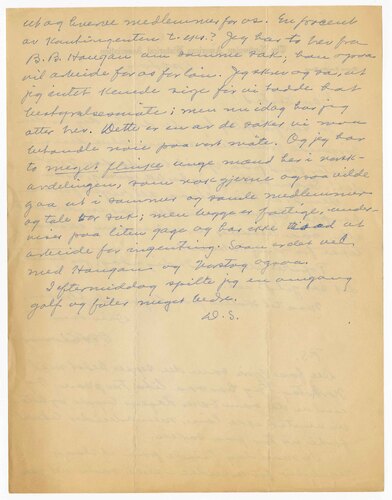 ut og hverve medlemmer for os. En procent
av kontingenten t. ex.? Jeg har to brev fra
B. B. Haugan om samme sak; han ogsaa
vil arbeide for os for løn. Jeg skrev og sa, at
jeg intet kunde sige før vi hadde hat
bestyrelsesmøte; men nu idag har jeg
atter brev. Dette er en av de saker vi maa
behandle nøie paa vort møte. Og jeg har
to meget flinke unge mænd her i norsk-
avdelingen, som nok gjerne ogsaa vilde
gaa ut i sommer og samle medlemmer
og tale vor sak; men begge er fattige, under-
viser paa liten gage og har ikke raad at
arbeide for ingenting. Saan er det vel
med Haugan og Xavstog ogsaa.
I eftermiddag spilte jeg en omgang
golf og føler meget bedre.
D. S.